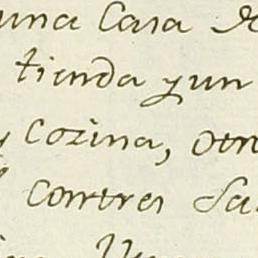 una Casa de
tienda y un
y Cozina, otro
con tres Sa